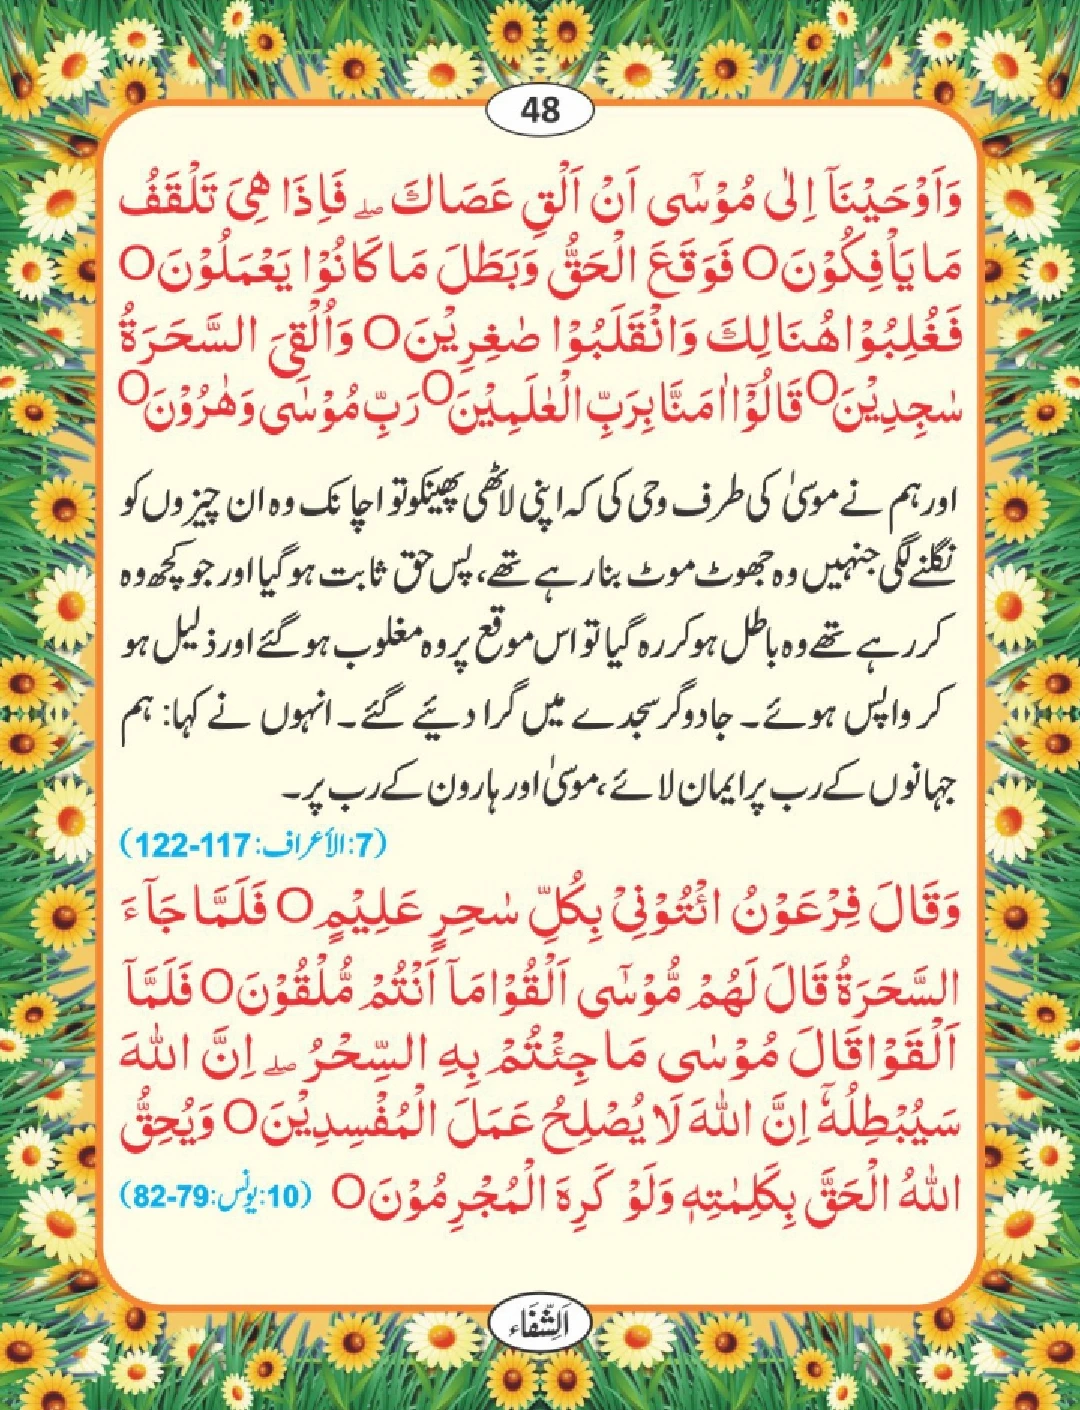 48
وَاَوْحَيْنَآ اِلٰى مُوْسٰٓى اَنْ اَلْقِ عَصَاكَ ۖ فَاِذَا هِىَ تَلْقَفُ
مَا يَاْفِكُوْنَ O فَوَقَعَ الْحَقُّ وَبَطَلَ مَا كَانُوْا يَعْمَلُوْنَ O
فَغُلِبُوْا هُنَالِكَ وَانْقَلَبُوْا صٰغِرِيْنَ O وَاُلْقِىَ السَّحَرَةُ
سٰجِدِيْنَ O قَالُوْٓا اٰمَنَّا بِرَبِّ الْعٰلَمِيْنَ O رَبِّ مُوْسٰى وَهٰرُوْنَ O
اور ہم نے موسیٰ کی طرف وحی کی کہ اپنی لاٹھی پھینکو تو اچانک وہ ان چیزوں کو
نگلنے لگی جنہیں وہ جھوٹ موٹ بنا رہے تھے، پس حق ثابت ہو گیا اور جو کچھ وہ
کر رہے تھے وہ باطل ہو کر رہ گیا تو اس موقع پر وہ مغلوب ہو گئے اور ذلیل ہو
کر واپس ہوئے۔ جادوگر سجدے میں گرا دیئے گئے۔ انہوں نے کہا: ہم
جہانوں کے رب پر ایمان لائے، موسیٰ اور ہارون کے رب پر۔
(7:الأعراف:117-122)
وَقَالَ فِرْعَوْنُ ائْتُوْنِىْ بِكُلِّ سٰحِرٍ عَلِيْمٍ O فَلَمَّا جَآءَ
السَّحَرَةُ قَالَ لَهُمْ مُّوْسٰٓى اَلْقُوْا مَآ اَنْتُمْ مُّلْقُوْنَ O فَلَمَّآ
اَلْقَوْا قَالَ مُوْسٰى مَا جِئْتُمْ بِهِ السِّحْرُ ۖ اِنَّ اللهَ
سَيُبْطِلُهٗٓ اِنَّ اللهَ لَا يُصْلِحُ عَمَلَ الْمُفْسِدِيْنَ O وَيُحِقُّ
اللهُ الْحَقَّ بِكَلِمٰتِهٖ وَلَوْ كَرِهَ الْمُجْرِمُوْنَ O (10:یونس:79-82)
اَلشِّفَاء